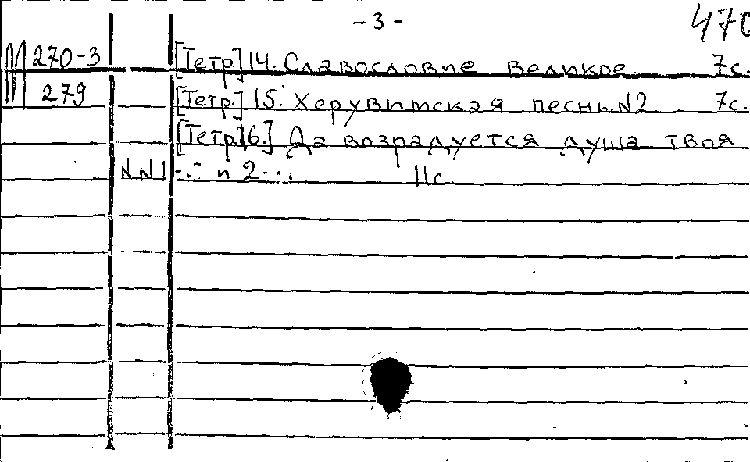 -3-
470
270-3 [Тетр] 14. Славословие великое 7с.
279 [Тетр.] 15. Херувимская песнь N2. 7с.
[Тетр 16.] Да возрадуется душа твоя
NN1 и 2 11с